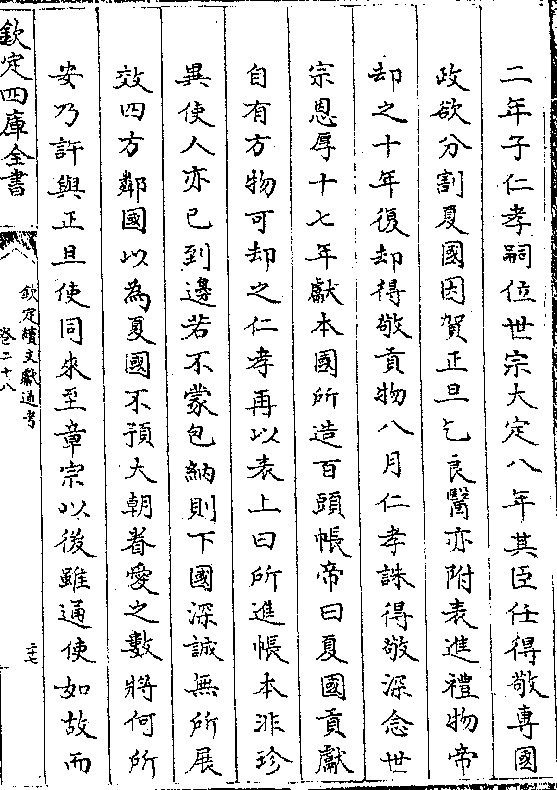 二年子仁孝嗣位世宗大定八年其臣任得敬專國
政欲分割夏國因賀正旦乞良醫亦附表進禮物帝
却之十年復却得敬貢物八月仁孝誅得敬深念世
宗恩厚十七年獻本國所造百頭帳帝曰夏國貢獻
自有方物可却之仁孝再以表上曰所進帳本非珍
異使人亦已到邊若不蒙包納則下國深誠無所展
效四方鄰國以為夏國不預大朝眷愛之數將何所
安乃許與正旦使同來至章宗以後雖通使如故而
欽定四庫全書
欽定續文獻通考
卷二十八
二十七